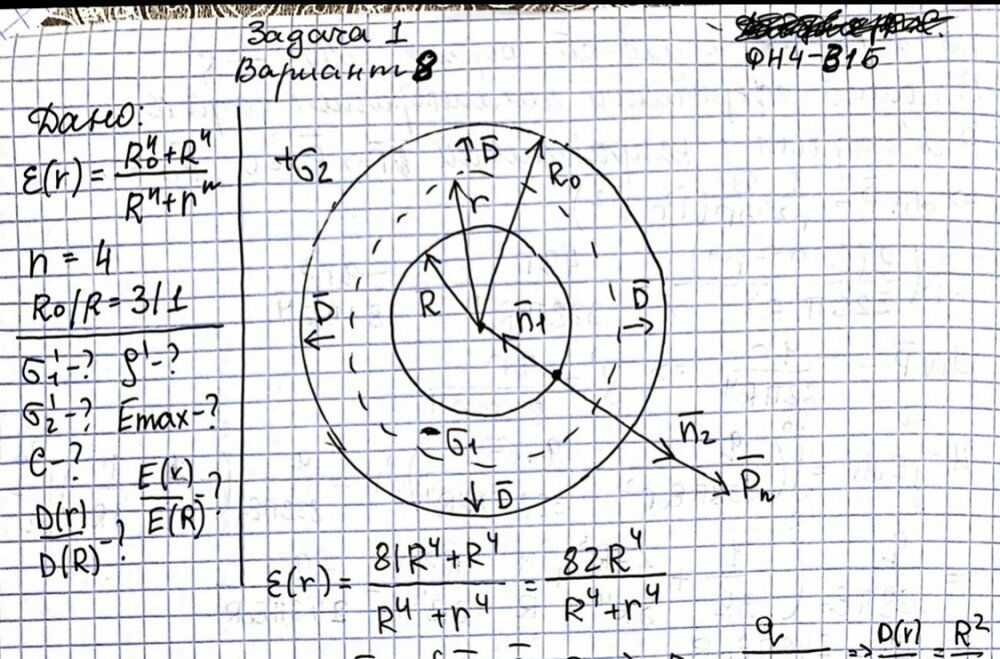 Задача 1
Вариант 8
ФН4-31Б
Дано:
ε(r) = (R₀ⁿ+Rⁿ)/(Rⁿ+rⁿ)
n = 4
R₀/R = 3/1
σ₁' - ? ρ' - ?
σ₂' - ? Emax - ?
C - ?
E(r)/E(R) - ?
D(r)/D(R) - ?
+σ₂
D̄
R₀
r
R
n̄₁
D̄
D̄
-σ₁
n̄₂
P̄n
D̄
ε(r) = (81R⁴+R⁴)/(R⁴+r⁴) = 82R⁴/(R⁴+r⁴)
q
=> D(r) = R²